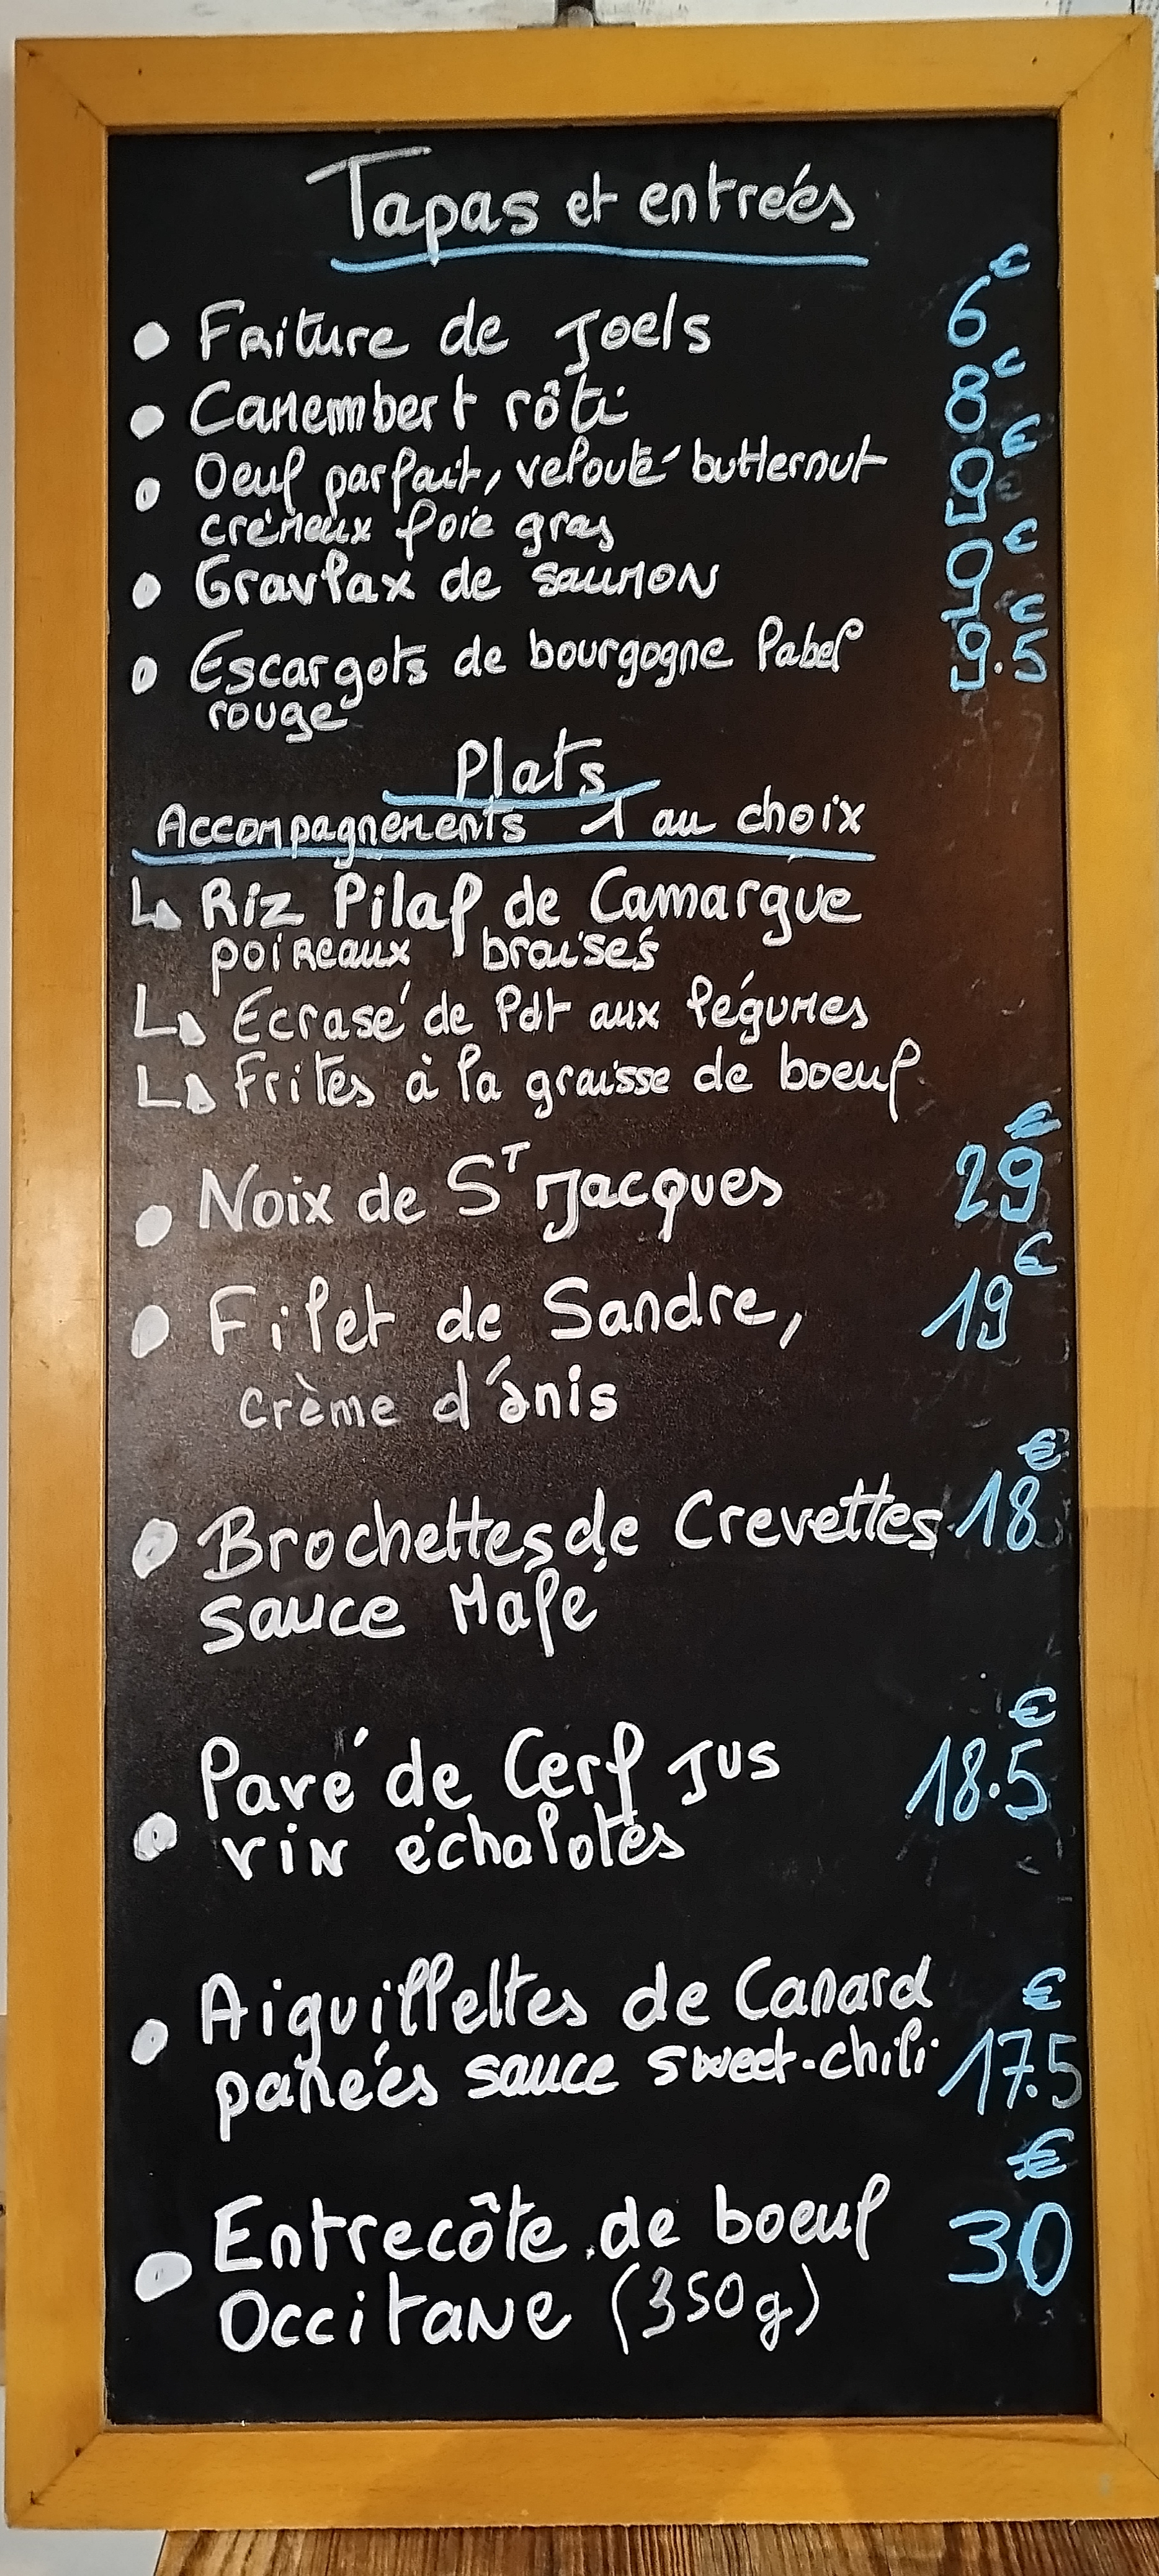 Tapas et entrées
• Friture de Joels 6€
• Camembert rôti 8€
• Oeuf parfait, velouté butternut 9€
crémeux foie gras
• Gravlax de saumon 9€
• Escargots de bourgogne label 9.5€
rouge
Plats
Accompagnements 1 au choix
↳ Riz Pilaf de Camargue
poireaux braisés
↳ Ecrasé de Pdt aux légumes
↳ Frites à la graisse de boeuf
• Noix de St Jacques 29€
• Filet de Sandre, 19€
crème d'anis
• Brochettes de Crevettes 18€
sauce Mafé
• Pavé de Cerf Jus 18.5€
vin échalotes
• Aiguillettes de Canard €
panées sauce sweet-chili 17.5
• Entrecôte de boeuf 30€
Occitane (350g)